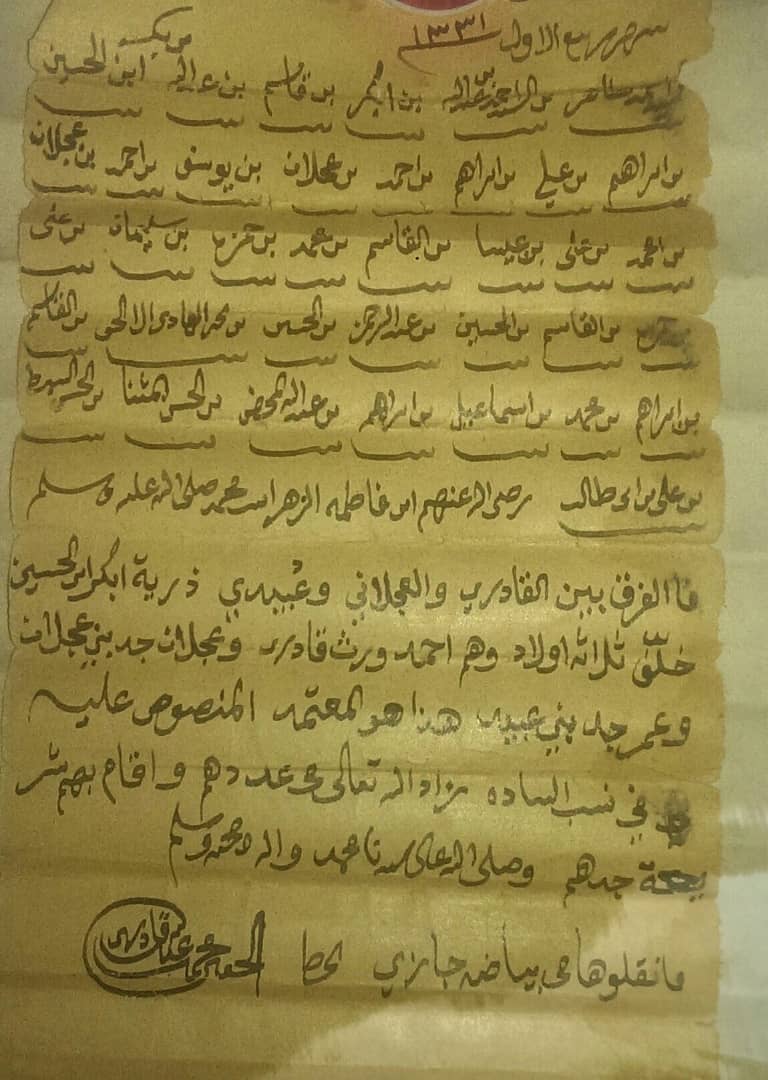 ربيع الاول ١٣٣١
طاهر بن السيد احمد بن عبدالله بن ابكر بن قاسم بن عبدالله ابن الحسين
بن ابراهيم بن علي بن ابراهيم بن احمد بن عجلان بن يوسف بن احمد بن عجلان
بن احمد بن علي بن عيسا بن القاسم بن محمد بن حمزه بن سليمان بن علي
بن القاسم بن الحسين بن عبدالرحمن بن الحسين بن الهادي الا الحق بن القاسم
بن ابراهيم بن محمد بن اسماعيل بن ابراهيم بن عبدالله المحض بن الحسن المثنا بن الحسن السبط
بن علي بن ابي طالب رضي الله عنهم ابن فاطمه الزهرا بنت محمد صلى الله عليه وسلم
فا الفرق بين القادري والعجلاني وعبيدي ذرية ابكر ابن الحسين
خلّف ثلاثه اولاد وهم احمد ورث قادري وعجلان جد بني عجلان
وعمر جد بني عبيد هذا هو المعتمد المنصوص عليه
في نسب الساده زاد الله تعالى عددهم واقام بهم شر
يعة جدهم وصلى الله على سيدنا محمد واله وصحبه وسلم
ما نقلوها بخط